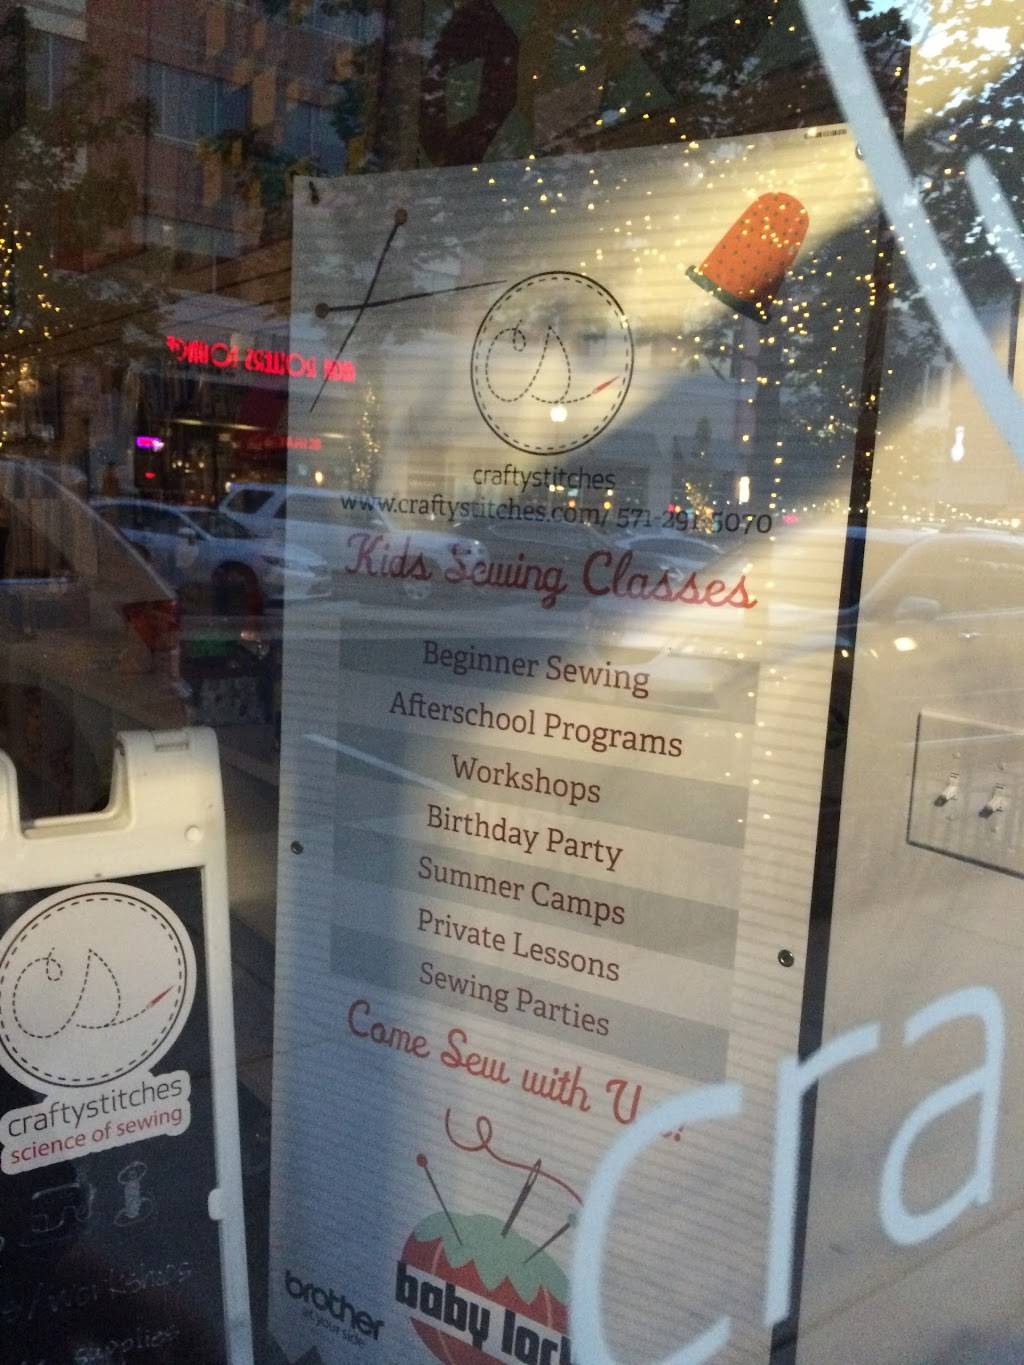 craftystitches
www.craftystitches.com/ 571-291-5070
Kids Sewing Classes
Beginner Sewing
Afterschool Programs
Workshops
Birthday Party
Summer Camps
Private Lessons
Sewing Parties
Come Sew with U
brother
at your side
baby lock
cra
craftystitches
science of sewing
/workshops
supplies